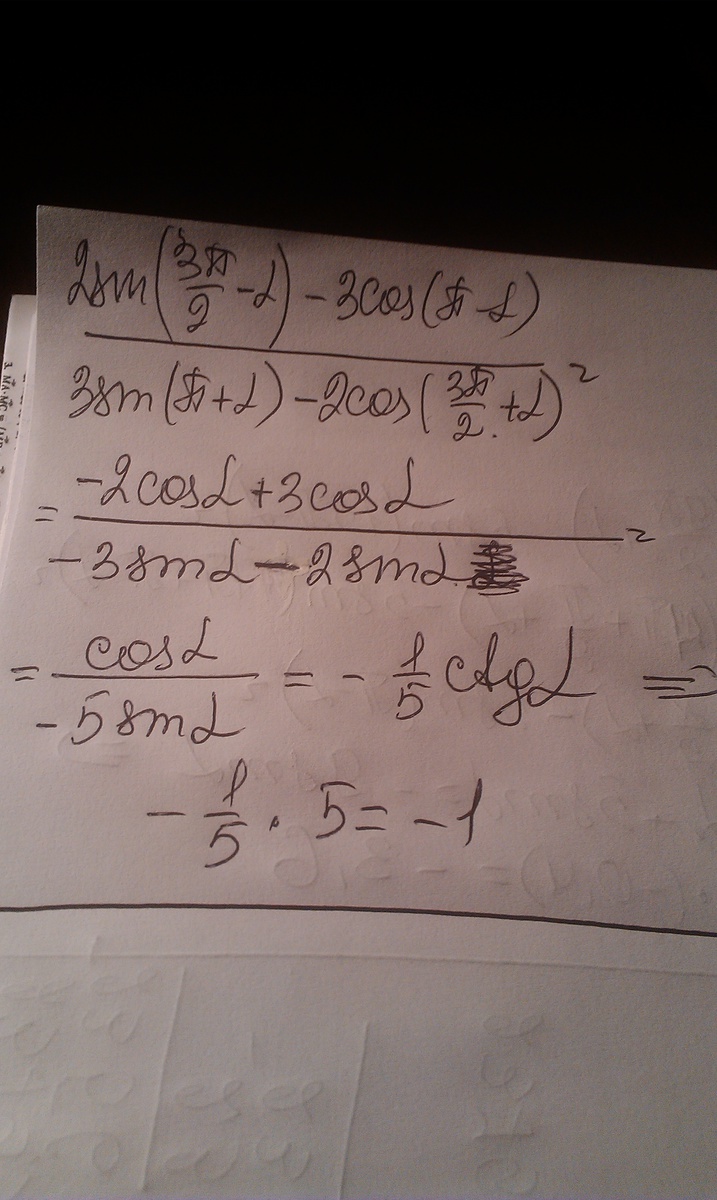 2sin(3π/2 - α) - 3cos(π - α)
3sin(π + α) - 2cos(3π/2 + α) =
= -2cosα + 3cosα
-3sinα - 2sinα =
= cosα / -5sinα = - 1/5 ctgα ⇒
- 1/5 · 5 = -1